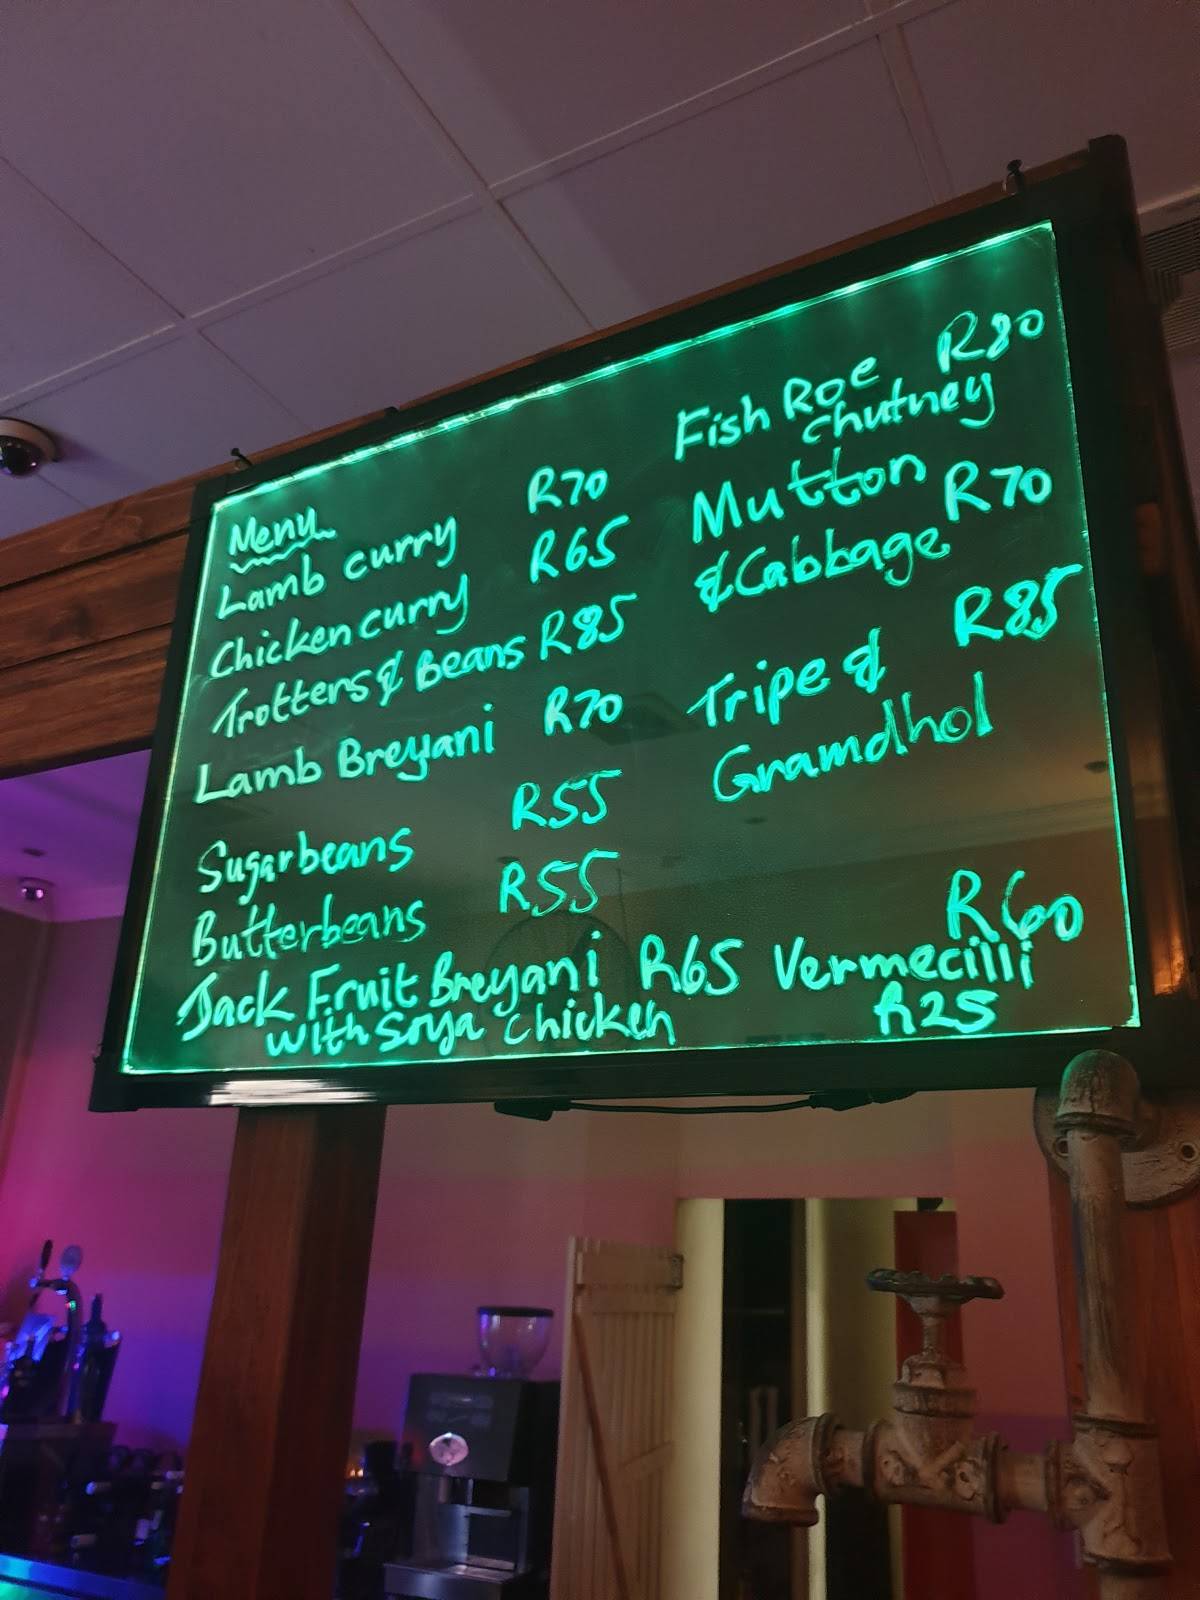 Menu
Lamb curry R70
Chicken curry R65
Trotters & Beans R85
Lamb Breyani R70
Sugarbeans R55
Butterbeans R55
Jack Fruit Breyani R65
with Soya Chicken
Fish Roe R80
Chutney
Mutton
& Cabbage R70
Tripe & R85
Gramdhol
R60
Vermecilli
R25